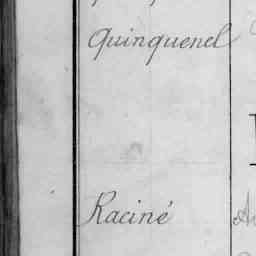 Quinquenel
Raciné